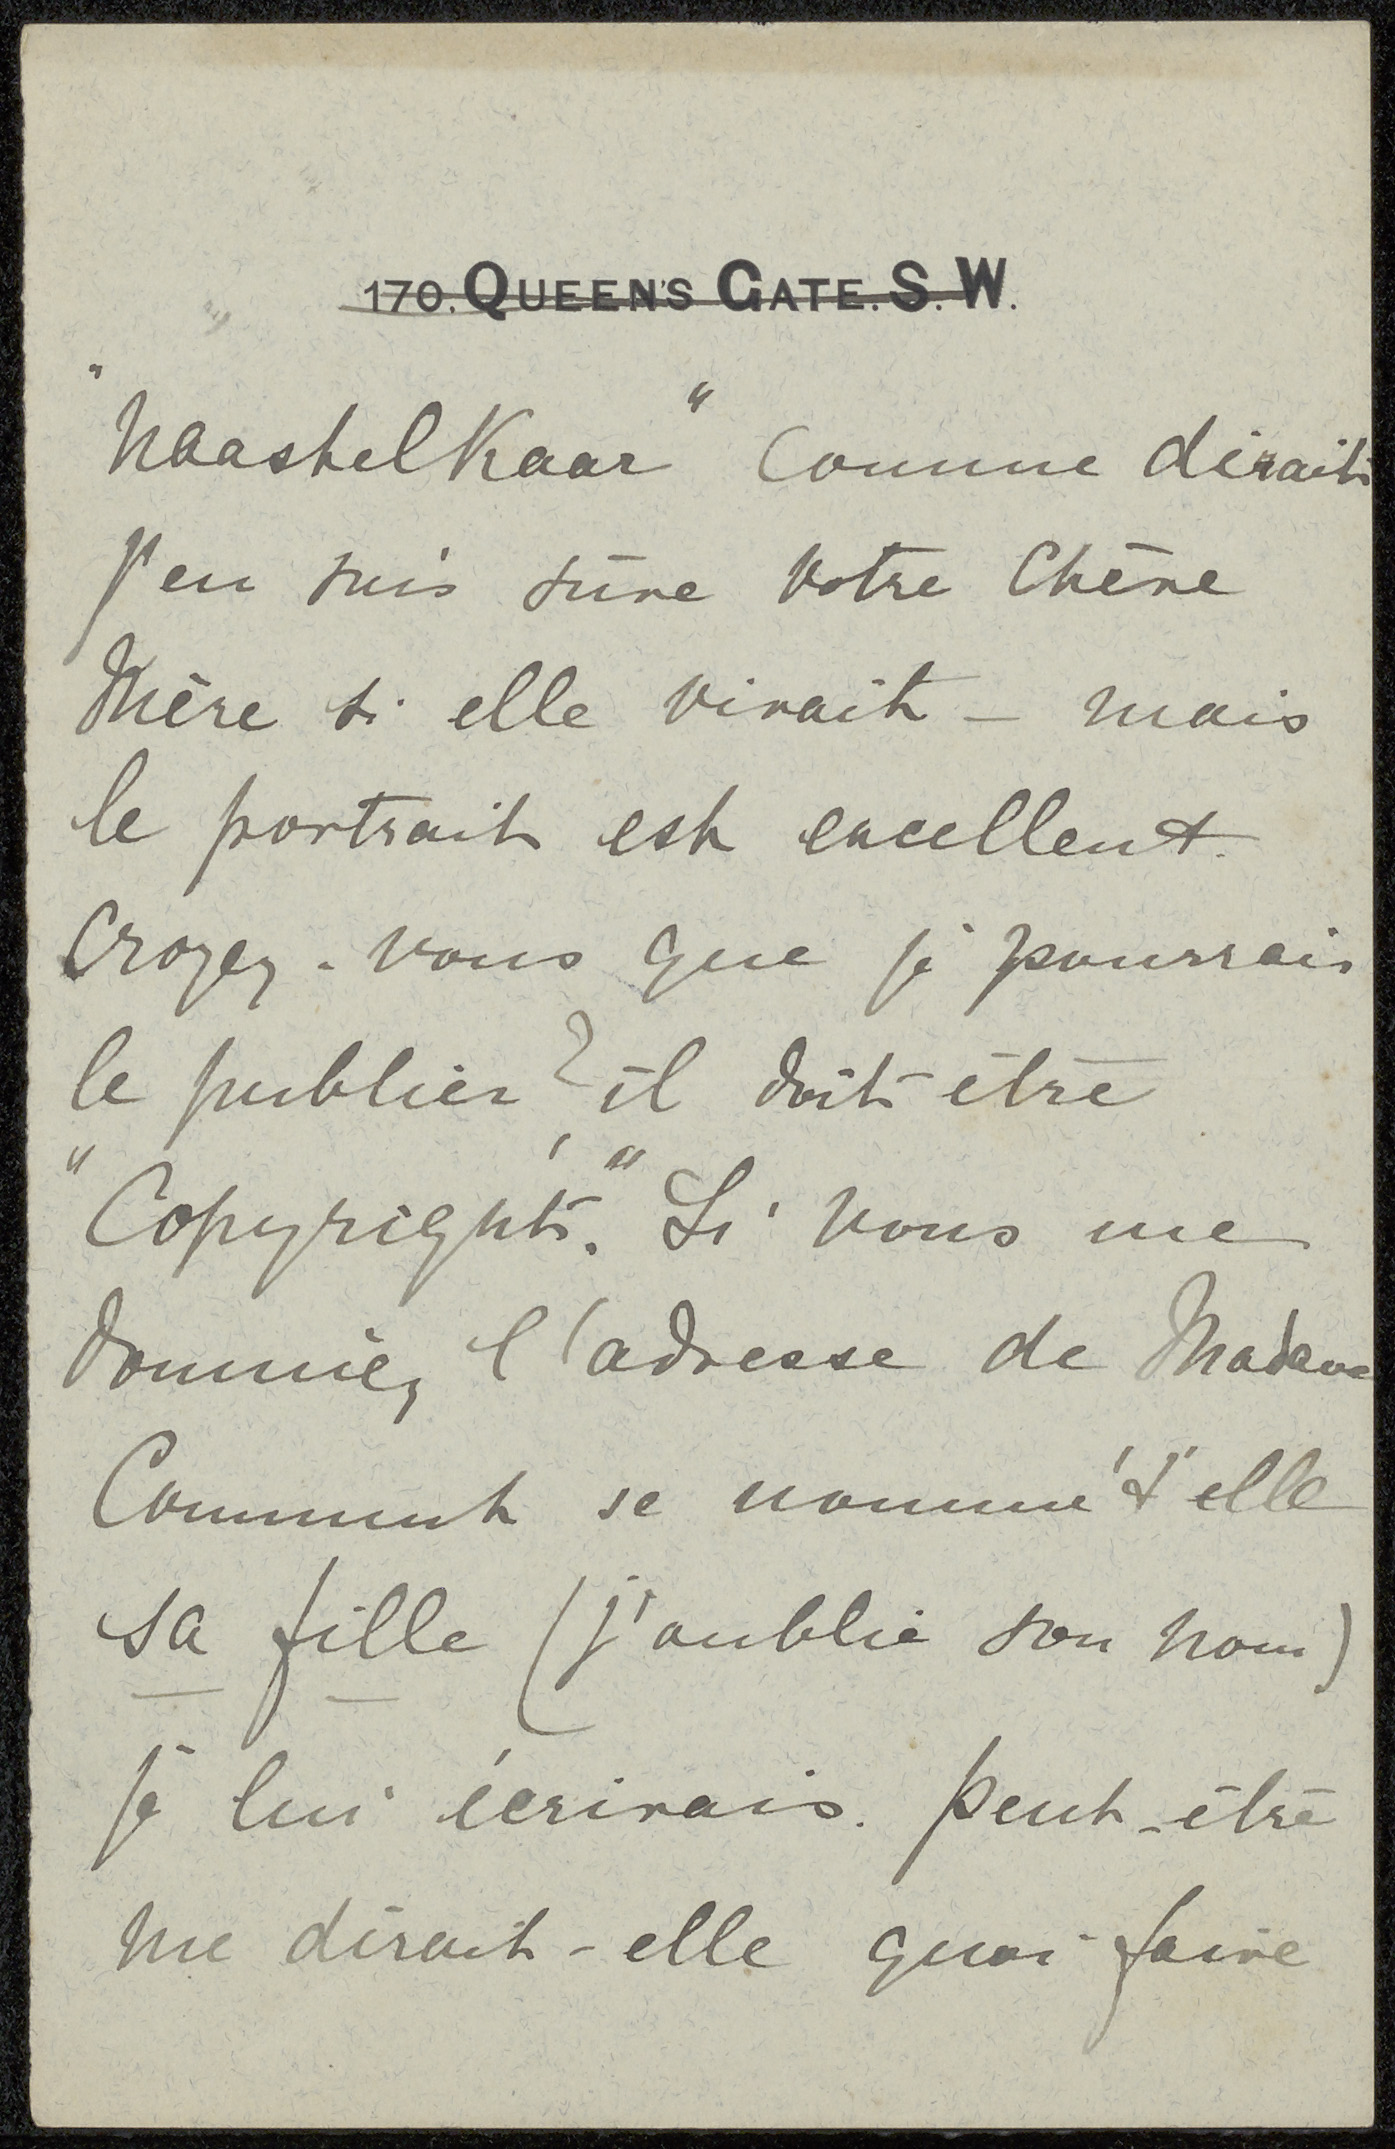 170. QUEEN'S GATE. S. W.
"naastelkaar" comme dirait
j'en suis sûre votre chère
Mère si elle vivait – mais
le portrait est excellent.
Croyez-vous que je pourrais
le publier? il doit être
"Copyright." Si vous me
donniez l'adresse de Madame
Comment se nomme t'elle
sa fille (j'oublie son nom)
je lui écrirais. peut-être
me dirait-elle quoi faire